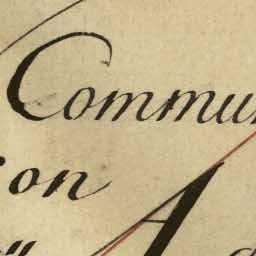 Commun
on
A